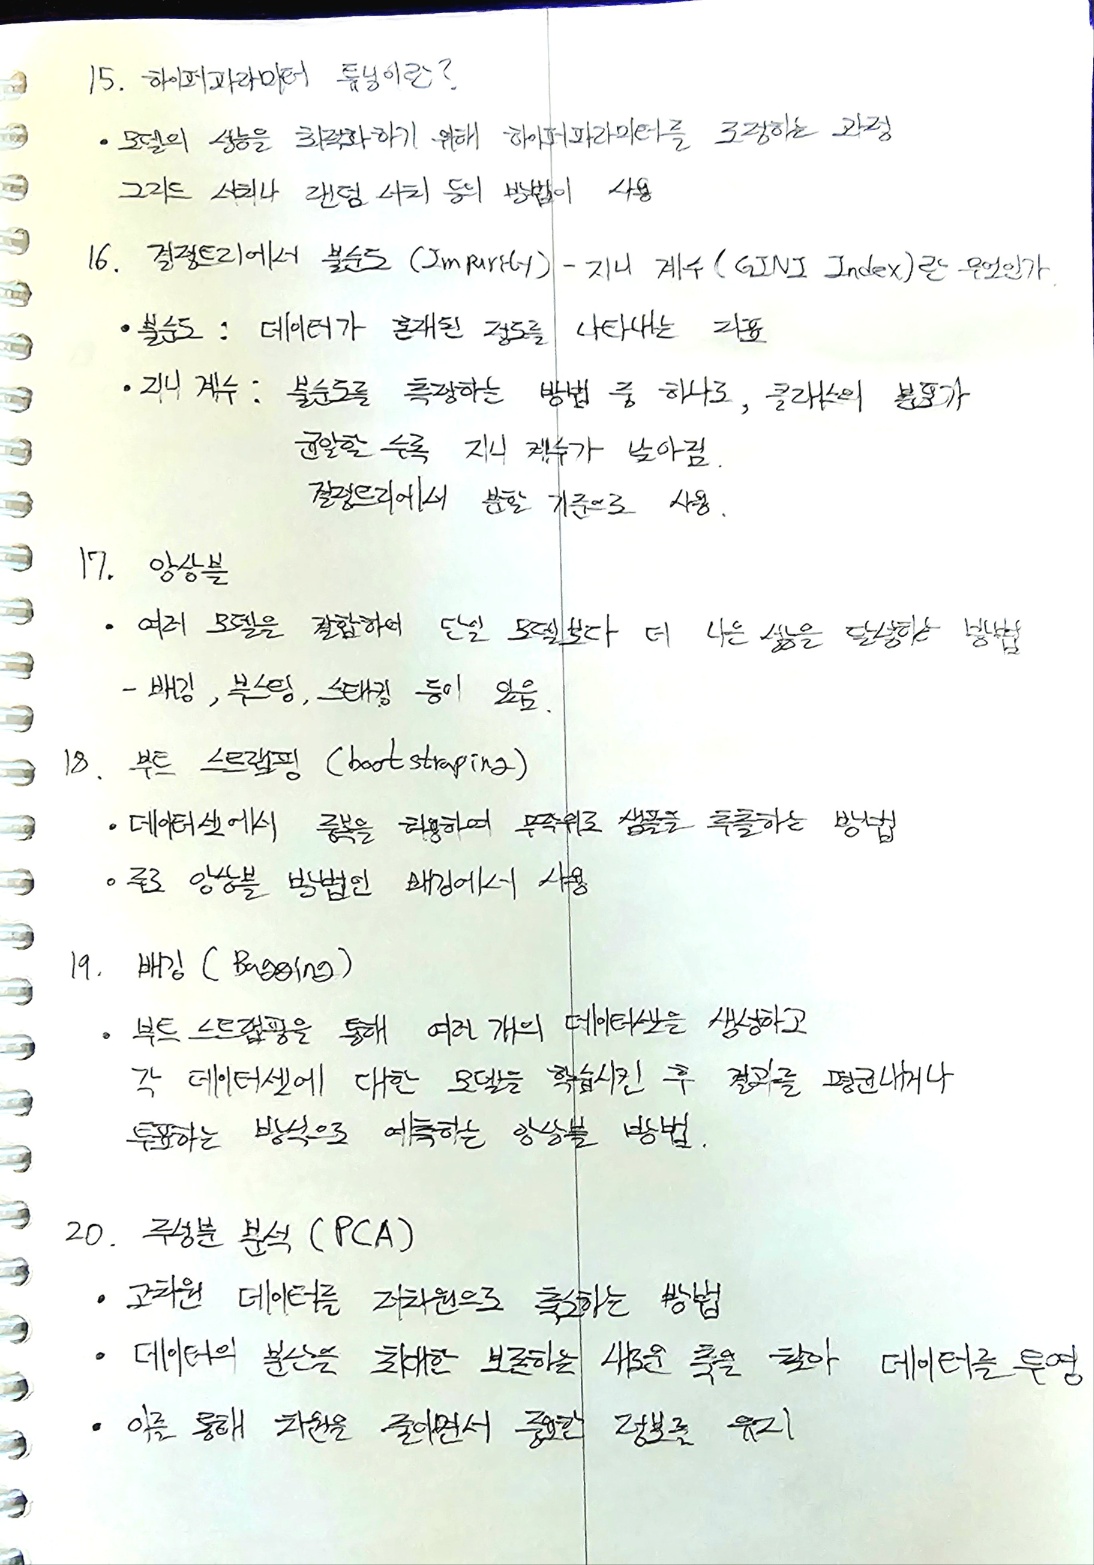 15. 하이퍼파라미터 튜닝이란?
• 모델의 성능을 최적화하기 위해 하이퍼파라미터를 조정하는 과정
그리드 서치나 랜덤 서치 등의 방법이 사용
16. 결정트리에서 불순도 (Impurity) - 지니 계수 (GINI Index)란 무엇인가
• 불순도 : 데이터가 혼재된 정도를 나타내는 지표
• 지니 계수 : 불순도를 측정하는 방법 중 하나로, 클래스의 분포가
균일할 수록 지니 계수가 낮아짐.
결정트리에서 분할 기준으로 사용.
17. 앙상블
• 여러 모델을 결합하여 단일 모델보다 더 나은 성능을 달성하는 방법
- 배깅, 부스팅, 스태킹 등이 있음.
18. 부트 스트랩핑 (bootstraping)
• 데이터셋에서 중복을 허용하여 무작위로 샘플을 추출하는 방법
• 주로 앙상블 방법인 배깅에서 사용
19. 배깅 (Bagging)
• 부트 스트랩핑을 통해 여러 개의 데이터셋을 생성하고
각 데이터셋에 대한 모델을 학습시킨 후 결과를 평균내거나
투표하는 방식으로 예측하는 앙상블 방법.
20. 주성분 분석 (PCA)
• 고차원 데이터를 저차원으로 축소하는 방법
• 데이터의 분산을 최대한 보존하는 새로운 축을 찾아 데이터를 투영
• 이를 통해 차원을 줄이면서 중요한 정보를 유지